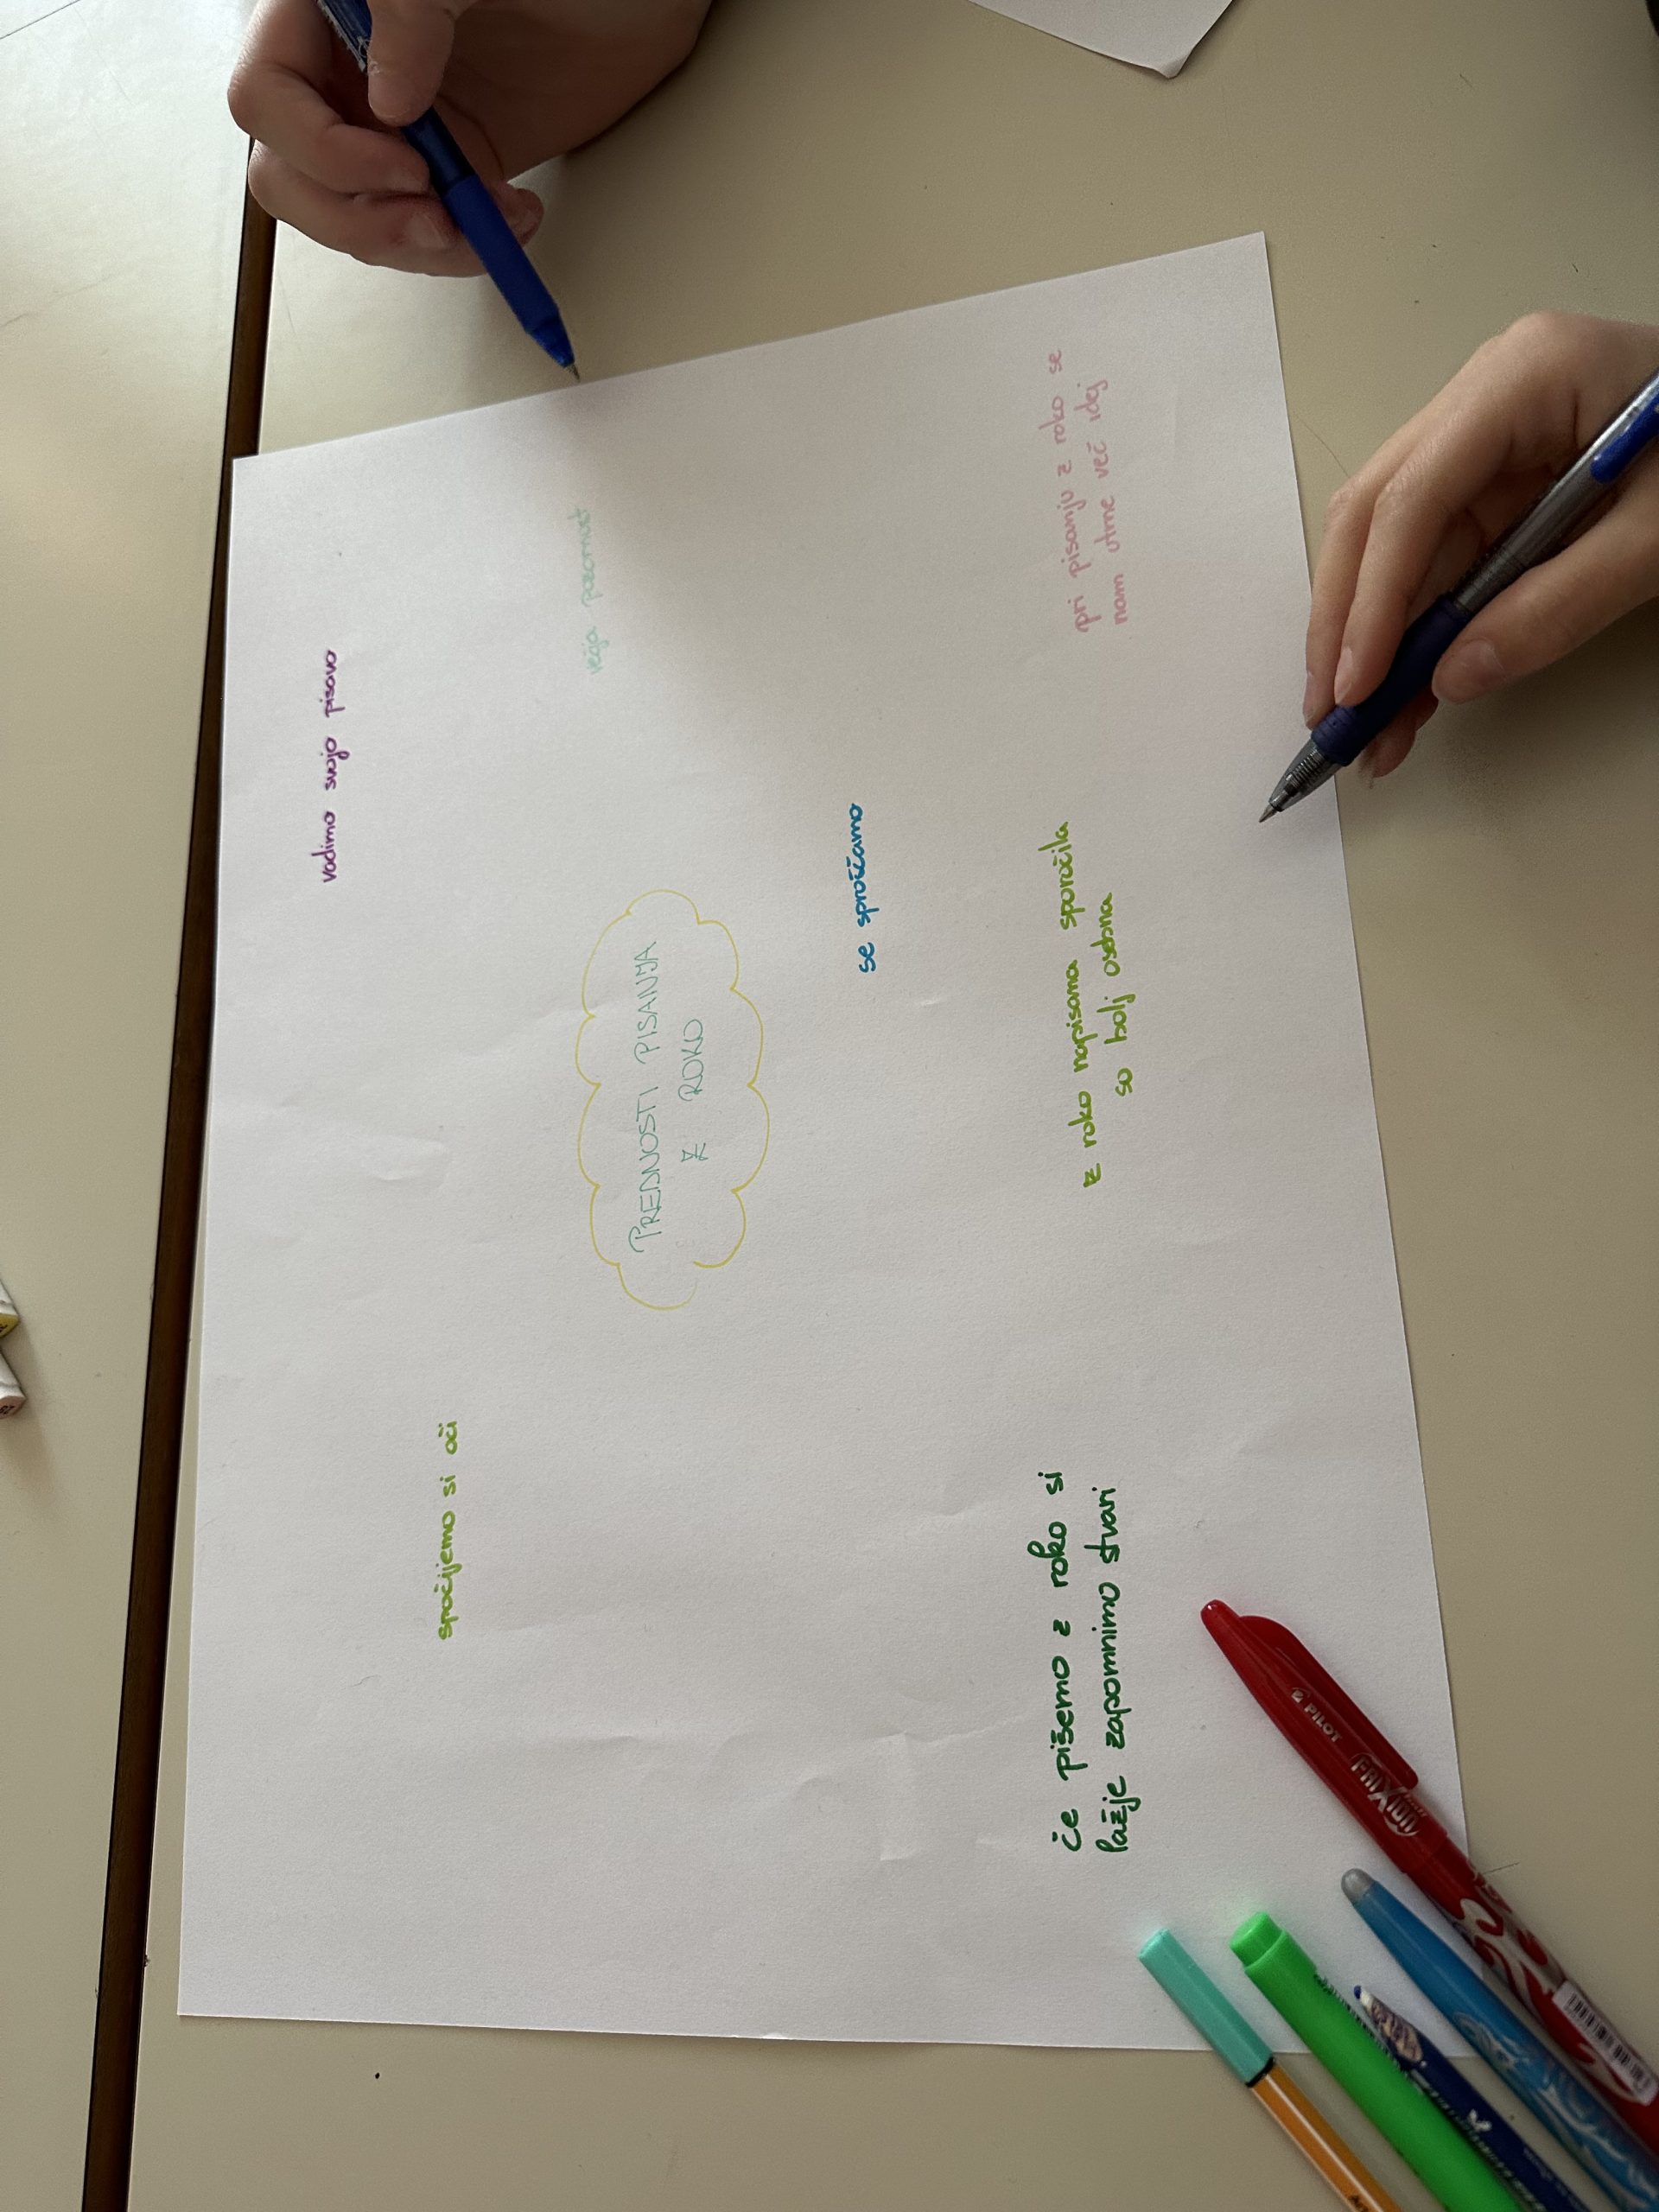 vadimo svojo pisavo
spočijemo si oči
večja pozornost
PREDNOSTI PISANJA
Z ROKO
se sproščamo
če pišemo z roko si
lažje zapomnimo stvari
z roko napisana sporočila
so bolj osebna
pri pisanju z roko se
nam utrne več idej
PILOT
FRIXION